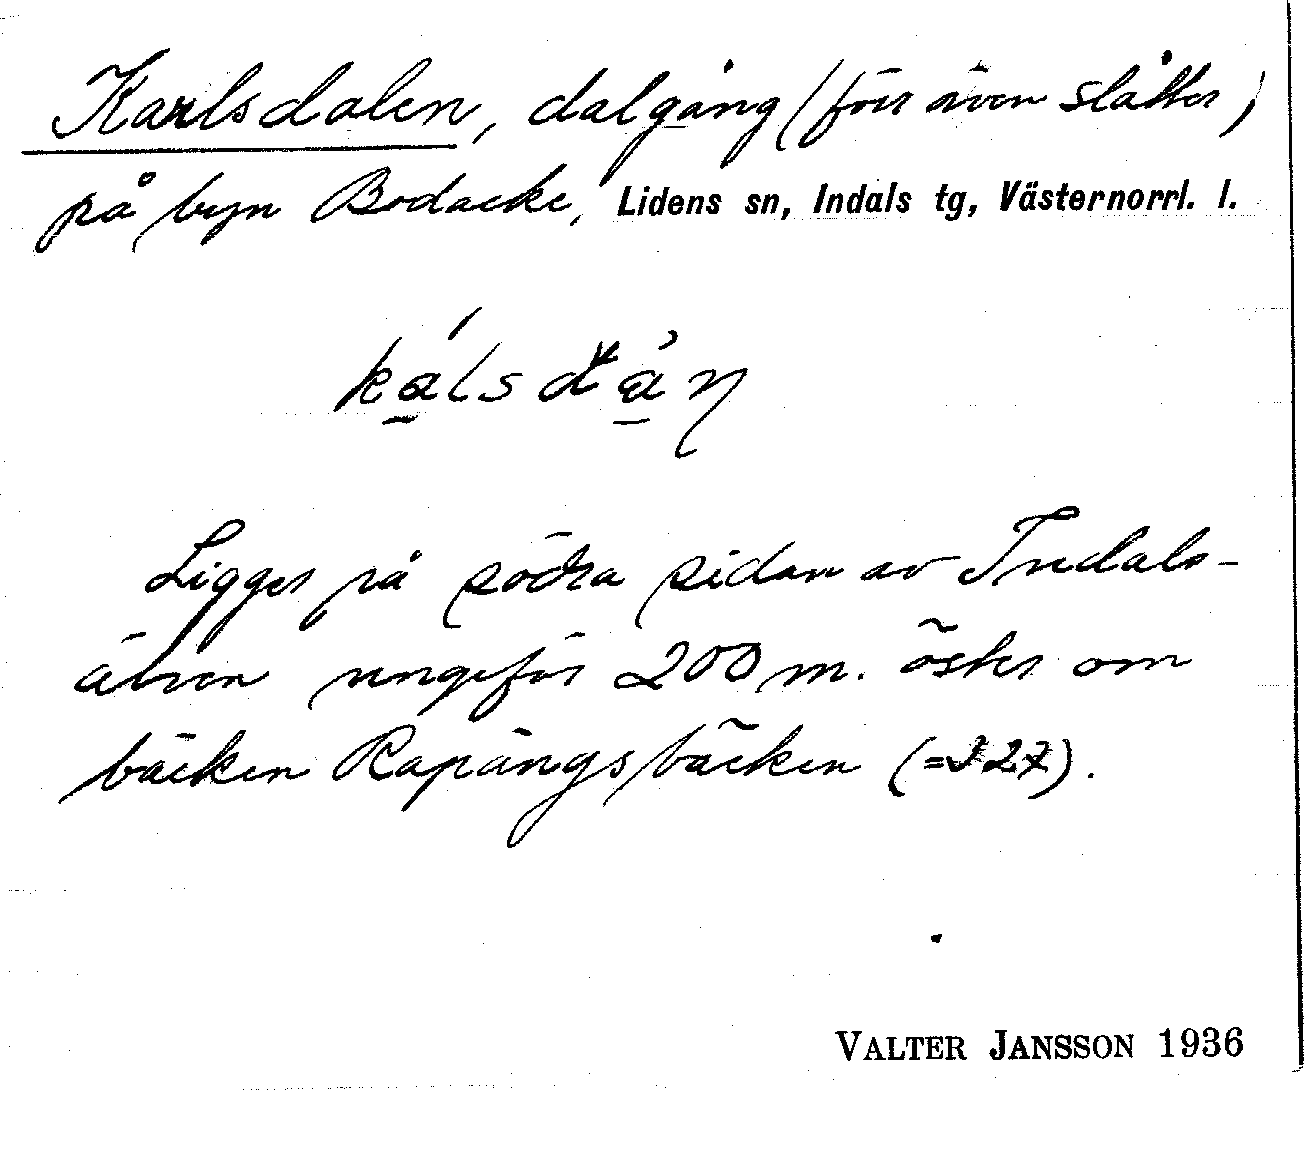 Karlsdalen, dalgång (förr även slåtter)
på byn Bodacke, Lidens sn, Indals tg, Västernorrl. l.
Ligger på södra sidan av Indals-
älven ungefär 200 m. öster om
bäcken Rapängsbäcken (=227).
VALTER JANSSON 1936